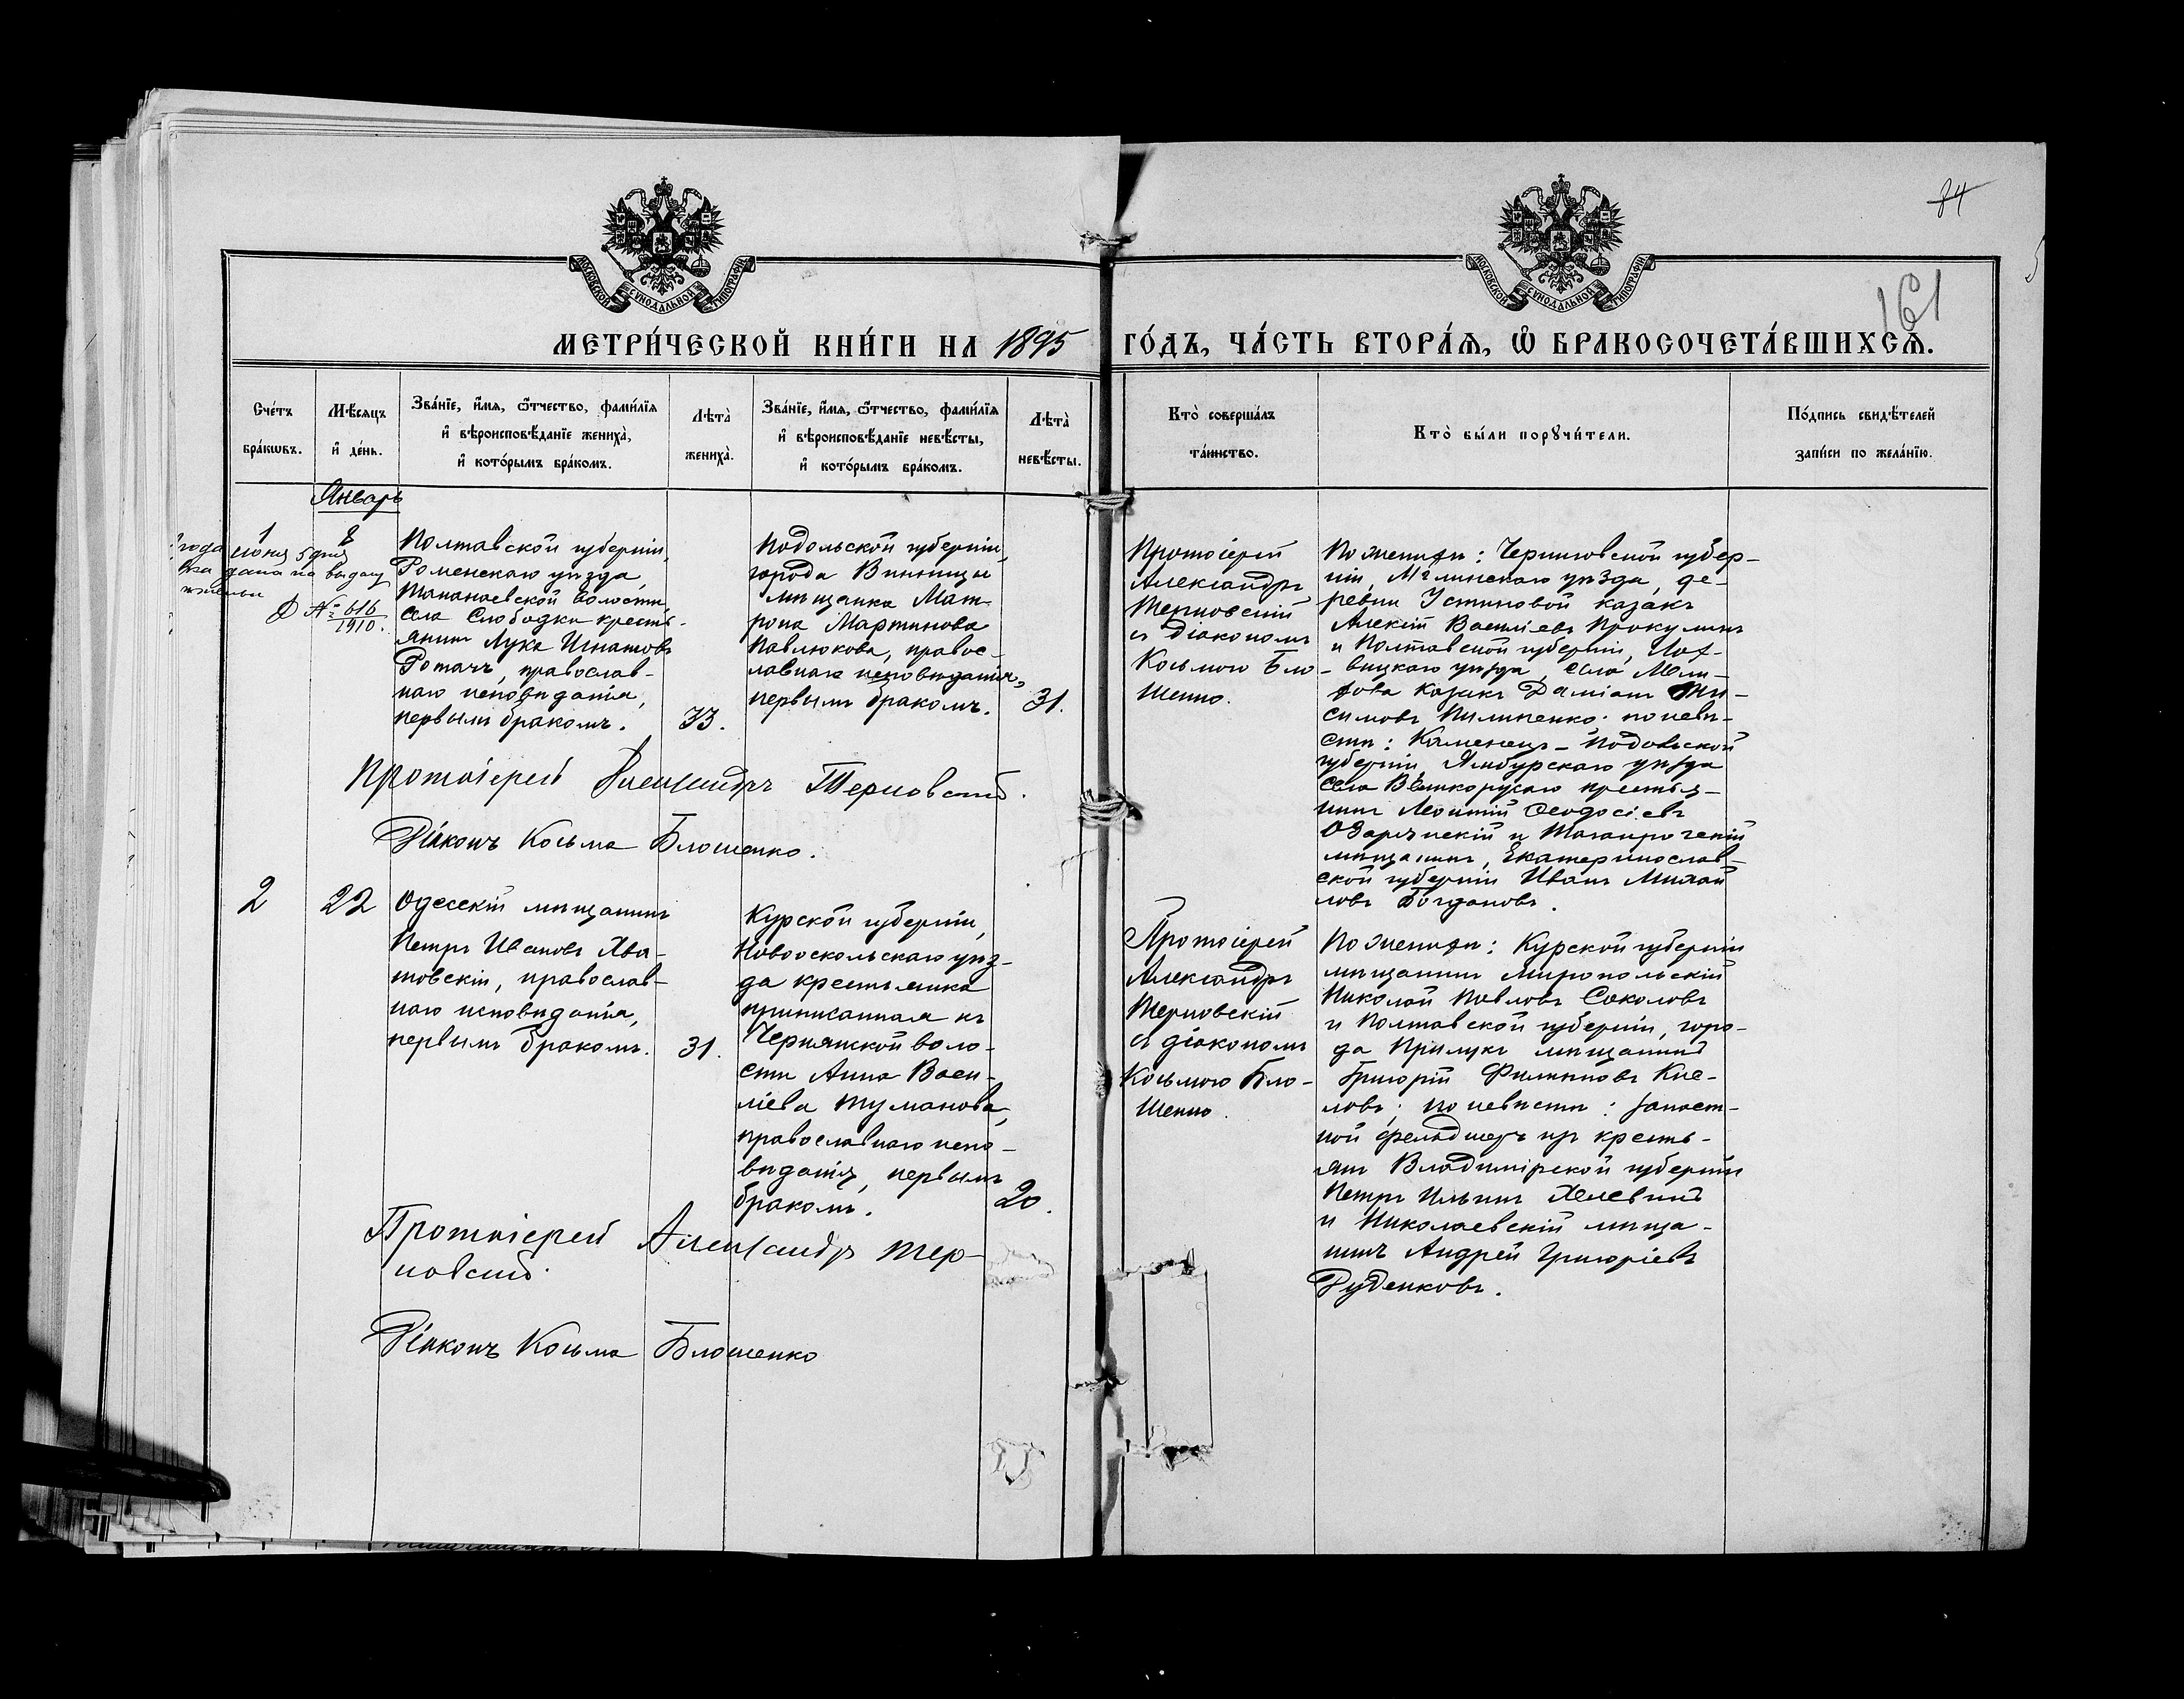 84
161
МОСКОВСКОЙ СѴНОДАЛЬНОЙ ТИПОГРАФІИ
МОСКОВСКОЙ СѴНОДАЛЬНОЙ ТИПОГРАФІИ
МЕТРИ́ЧЕСКОЙ КНИ́ГИ НА 1895 ГО́ДЪ, ЧА́СТЬ ВТОРА́Ѧ, Ѽ БРАКОСОЧЕТА́ВШИХСѦ.
Сче́тъ
бра́кѡвъ.
Мѣ́сяцъ
и҆ де́нь.
Зва́нїе, и҆́мя, ѻ҆́тчество, фами́лїя
и҆ вѣроисповѣ́данїе жениха̀,
и҆ кото́рымъ бра́комъ.
Лѣта̀
жениха̀.
Зва́нїе, и҆́мя, ѻ҆́тчество, фами́лїя
и҆ вѣроисповѣ́данїе невѣ́сты,
и҆ кото́рымъ бра́комъ.
Лѣта̀
невѣ́сты.
Кто̀ соверша́лъ
та́инство.
Кто̀ бы́ли порꙋчи́тели.
По́дпись свидѣ́телей
за́писи по жела́нїю.
Январь
1
8
года іюня 5 дня
дана на выдачу
№ 616
1910.
Полтавской губерніи,
Роменскаго уѣзда,
волости,
села Слободки кресть-
янинъ Лука Игнатовъ
Ротачъ, православ-
наго исповѣданія,
первымъ бракомъ.
33.
Подольской губерніи,
города Винницы
мѣщанка Мат-
рона Мартинова
Павлюкова, правос-
лавнаго исповѣданія,
первымъ бракомъ.
31.
Протоіерей
Александръ
Терновскій
съ діакономъ
Косьмою Бло-
шенко.
По женихѣ: Черниговской губер-
ніи, Мглинскаго уѣзда, де-
ревни Устиновой казакъ
Алексѣй Василіевъ Прокулинъ
и Полтавской губерніи, Лох-
вицкаго уѣзда, села
казакъ Даміанъ
симовъ Пилипенко; по невѣ-
стѣ: Каменецъ-Подольской
губерніи, Ямбурскаго уѣзда
села крестья-
нинъ Леонтій Ѳеодосіевъ
и Таганрогскій
мѣщанинъ, Екатеринослав-
ской губерніи Иванъ Михай-
ловъ Богдановъ.
Протоіерей Александръ Терновскій.
Діаконъ Косьма Блошенко.
2
22
Одесскій мѣщанинъ
Петръ Ивановъ Хва-
товскій, православ-
наго исповѣданія,
первымъ бракомъ.
31.
Курской губерніи,
Новооскольскаго уѣз-
да крестьянка
приписанная къ
Чернянской воло-
сти Анна Васи-
ліева Туманова,
православнаго испо-
вѣданія, первымъ
бракомъ.
20.
Протоіерей
Александръ
Терновскій
съ діакономъ
Косьмою Бло-
шенко.
По женихѣ: Курской губерніи
мѣщанинъ Миропольскій
Николай Павловъ Соколовъ
и Полтавской губерніи, горо-
да Прилукъ мѣщанинъ
Григорій Филиповъ Кис-
ловъ; по невѣстѣ: запаст-
ной фельдшеръ изъ кресть-
янъ Владимірской губерніи
Петръ Ильинъ Хлевинъ
и Николаевскій мѣща-
нинъ Андрей Григоріевъ
Руденковъ.
Протоіерей Александръ Тер-
новскій.
Діаконъ Косьма Блошенко